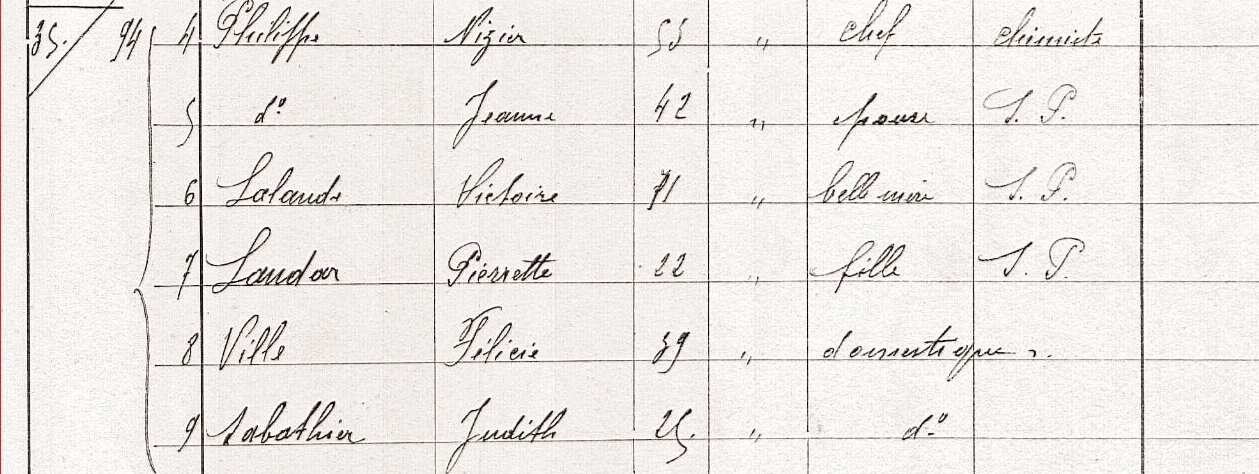 35. 94 4 Philippe Nizier 55 " chef chimiste
5 d° Jeanne 42 " épouse S. P.
6 Lalande Victoire 71 " belle mère S. P.
7 Landar Pierrette 22 " fille S. P.
8 Ville Félicie 39 " domestique
9 Sabathier Judith 25. " d°